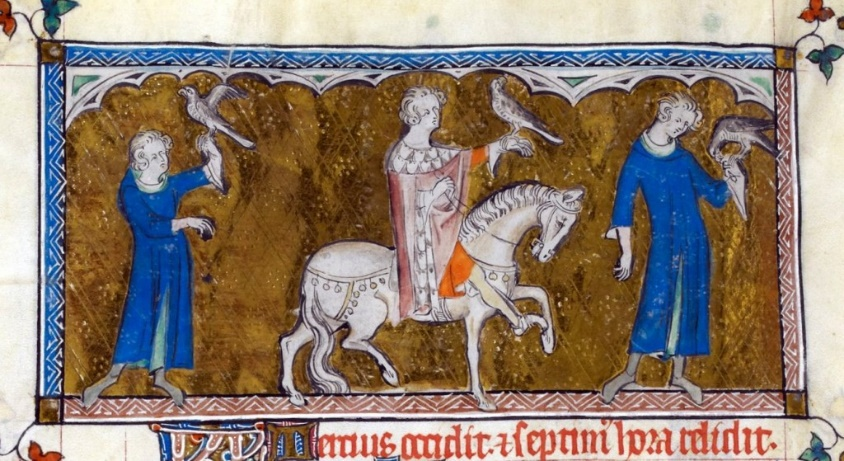 Tercius occidit. ⁊ septim' hora relidit.